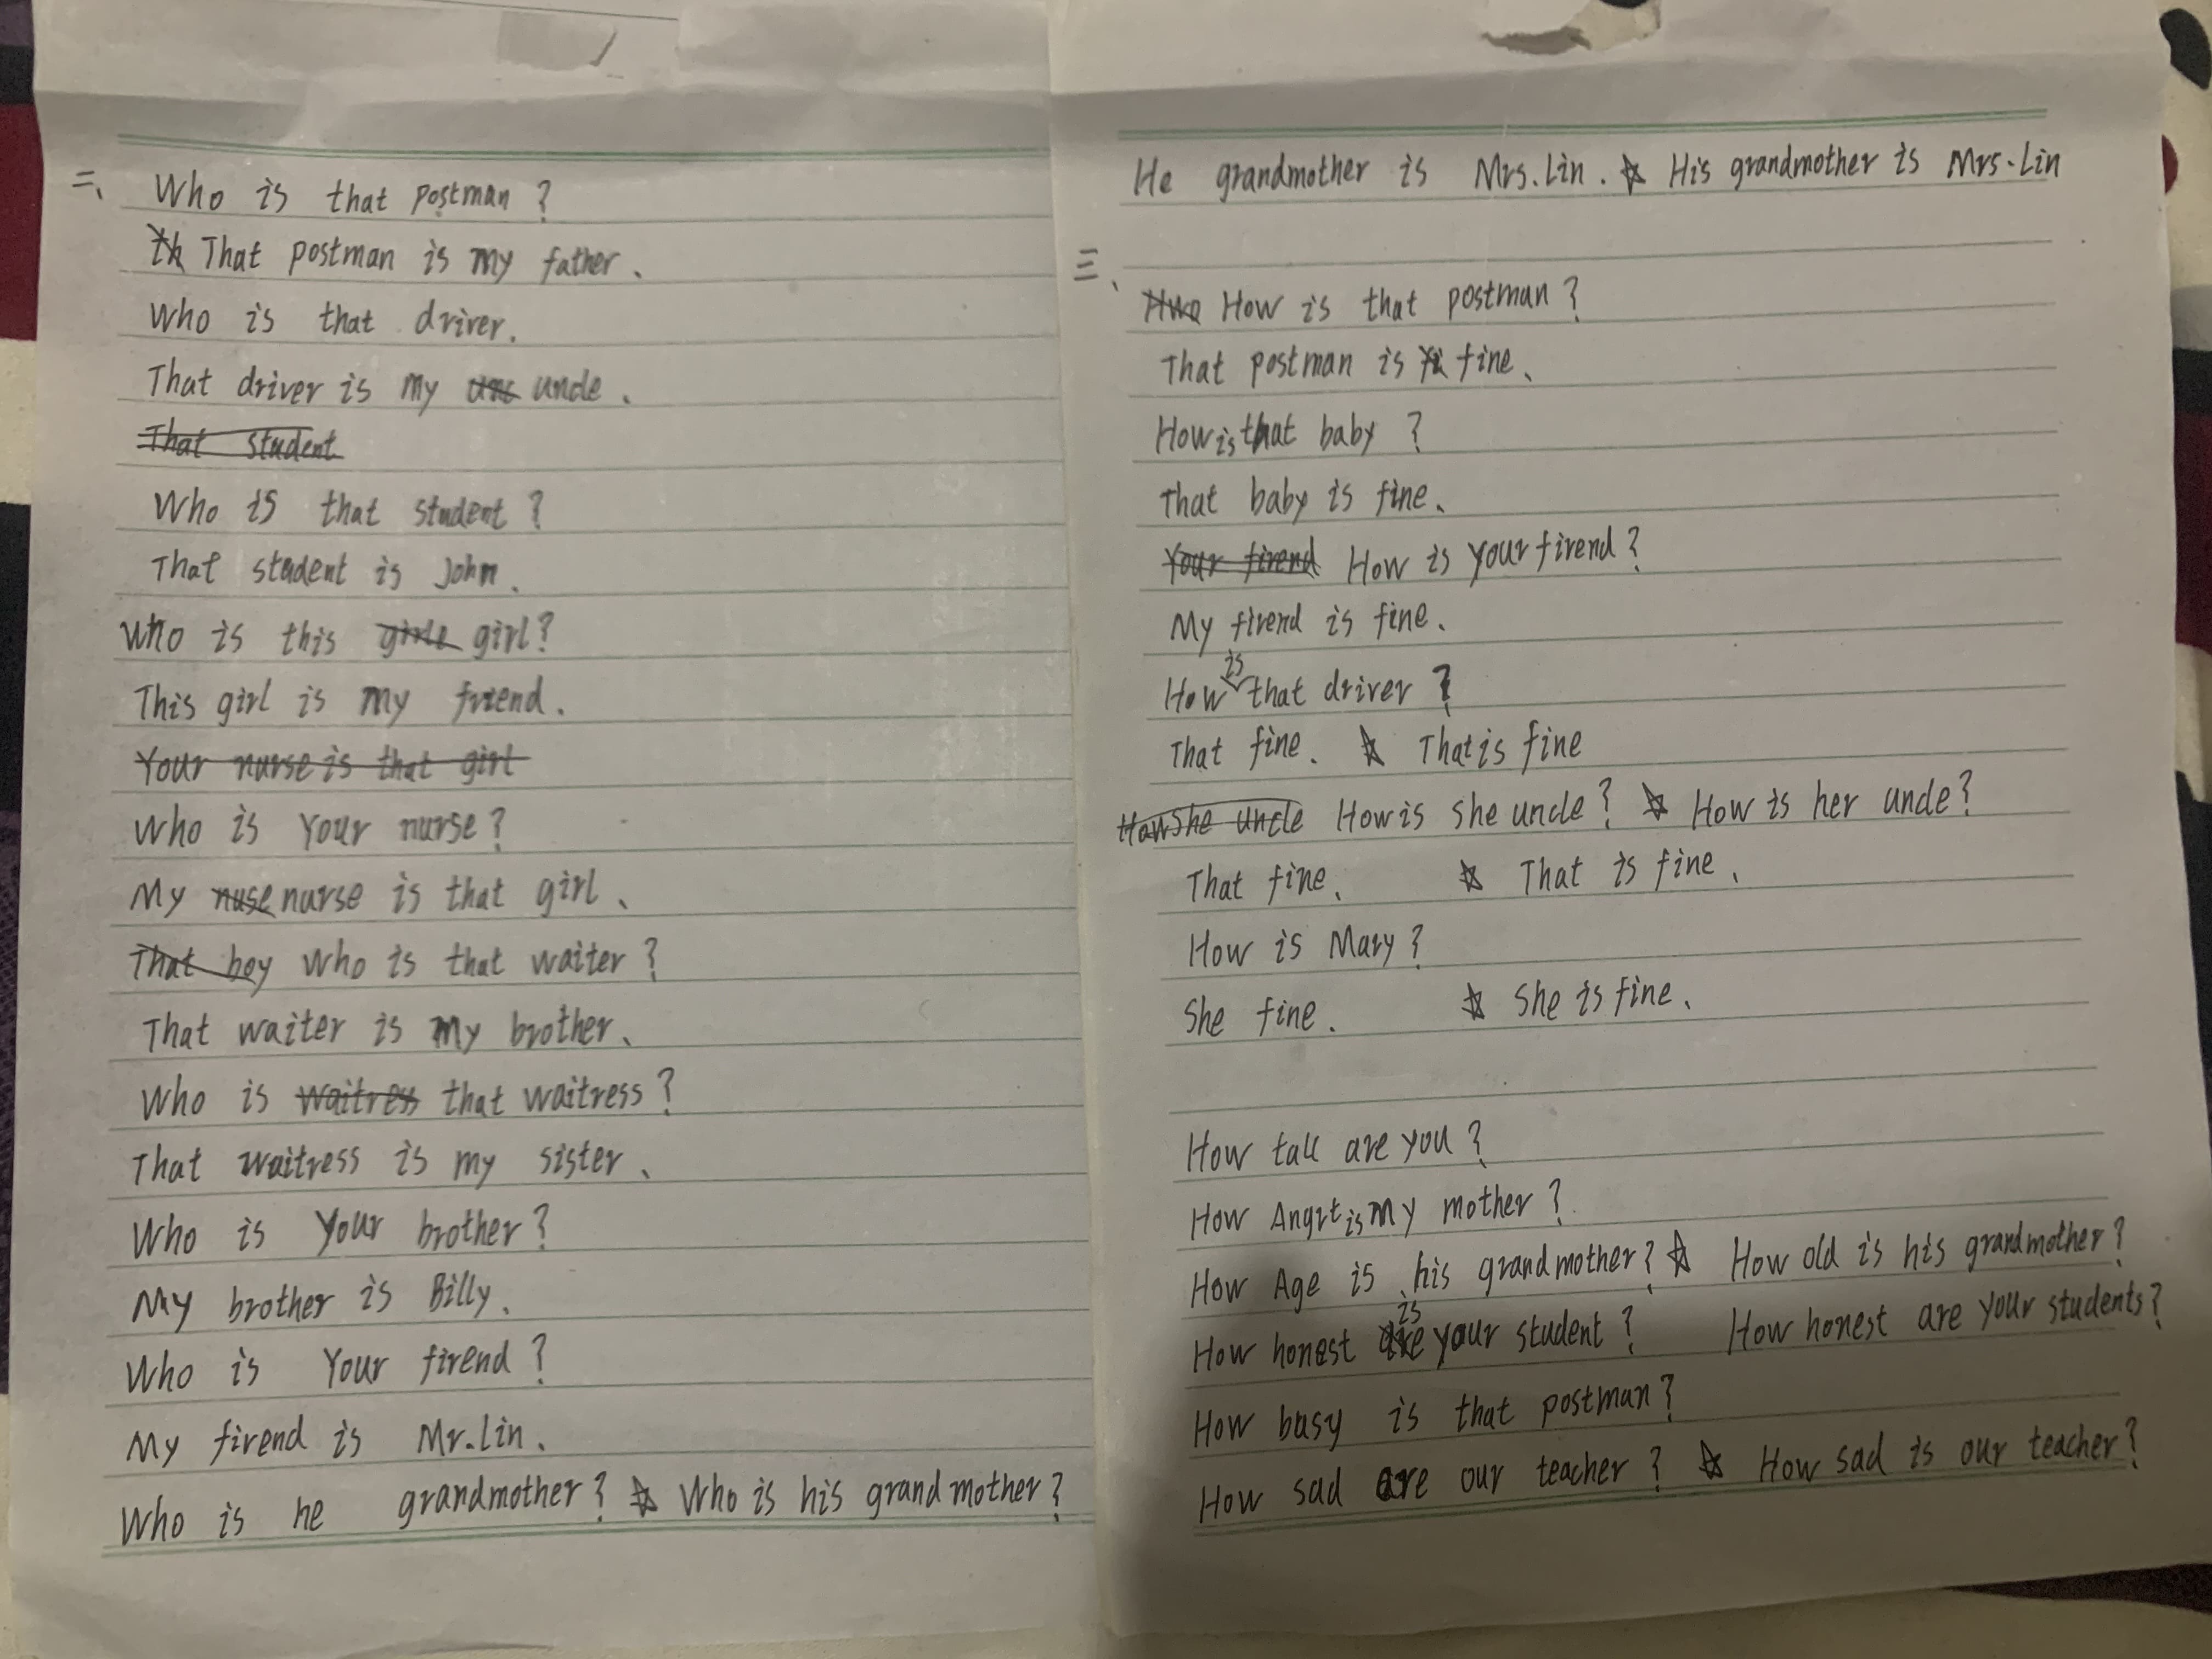 二、 Who is that postman ?
That postman is my father .
Who is that driver .
That driver is my uncle .
That student
Who is that student ?
That student is John .
Who is this girl ?
This girl is my friend .
Your nurse is that girl
Who is Your nurse ?
My nuse nurse is that girl .
That boy who is that waiter ?
That waiter is my brother .
Who is waitress that waitress ?
That waitress is my sister .
Who is Your brother ?
My brother is Billy .
Who is Your firend ?
My firend is Mr.Lin .
Who is he grandmother ? ☆ Who is his grandmother ?
He grandmother is Mrs.Lin . ☆ His grandmother is Mrs.Lin
三、
How is that postman ?
That postman is fine .
How is that baby ?
That baby is fine .
Your firend How is your firend ?
My firend is fine .
How is that driver ?
That fine . ☆ That is fine
How she uncle How is she uncle ? ☆ How is her uncle ?
That fine . ☆ That is fine .
How is Mary ?
She fine . ☆ She is fine .
How tall are you ?
How is my mother ?
How Age is his grandmother ? ☆ How old is his grandmother ?
How honest is your student ? How honest are your students ?
How busy is that postman ?
How sad are our teacher ? ☆ How sad is our teacher ?